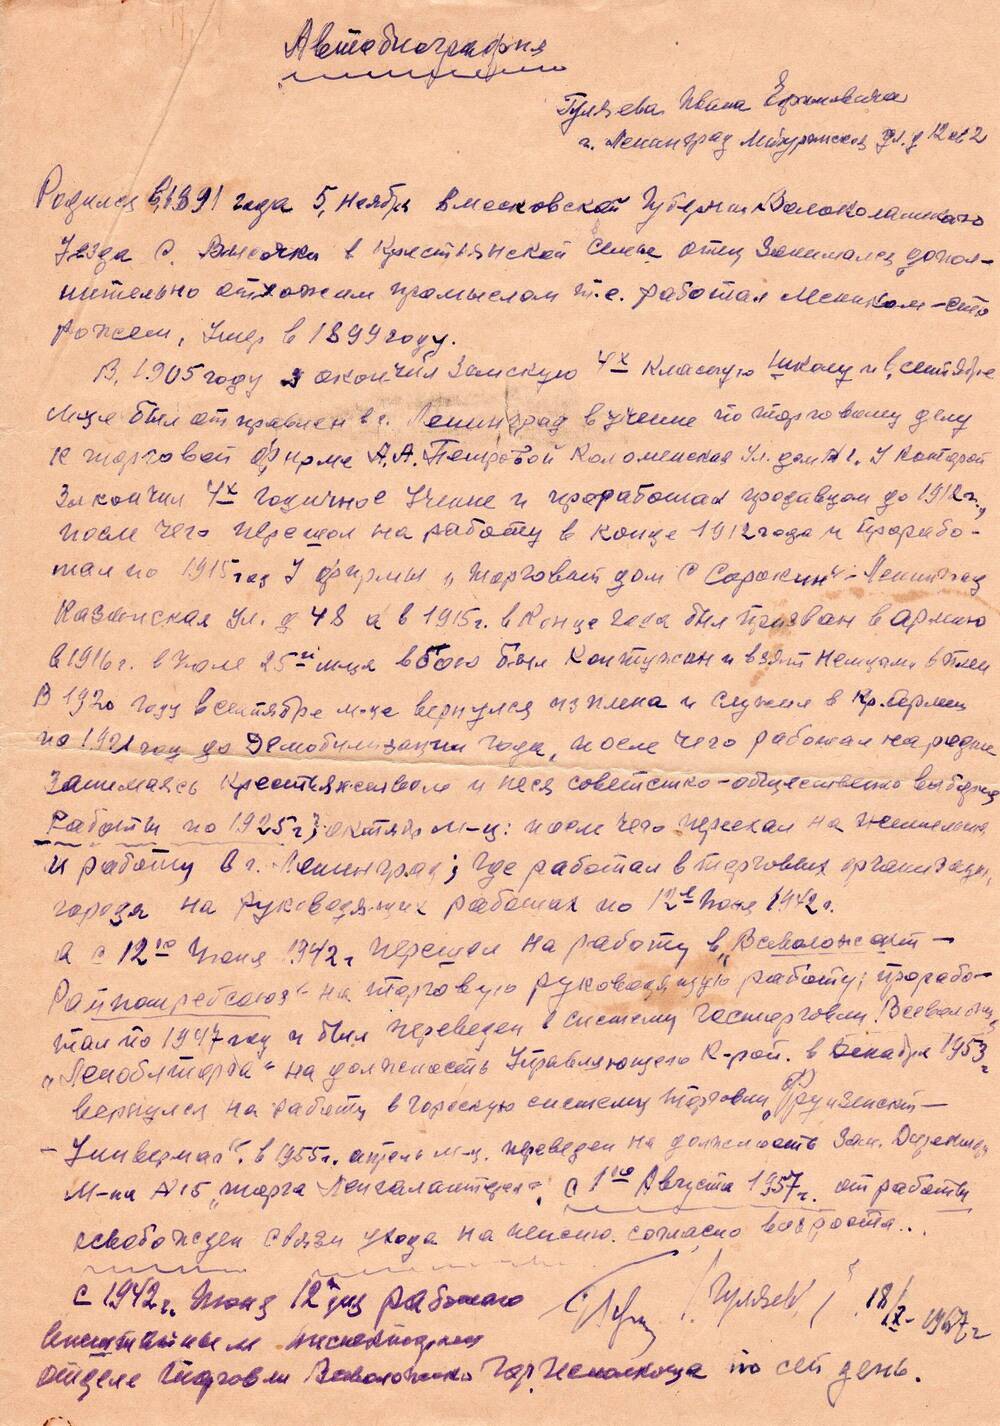 Автобиография
Гуляева Ивана Ефимовича
г. Ленинград Мичуринская ул. д 12 кв 2
Родился в, 1891 года 5, ноября в московской Губернии Волоколамского
Уезда с. в крестьянской семье отец Занимался допол-
нительно отхожим промыслом т.е. работал -сто
рожем, умер в 1899 году.
В, 1905 году я окончил Земскую 4х класную школу и в, сентябре
м-це был отправлен в г. Ленинград в учение по торговому делу
к торговой фирме А.А. Петровой Коломенская Ул. дом № 1. У Которой
Закончил 4х годичное Учение и проработал продавцом до 1912 г.,
после чего перешол на работу в конце 1912 года и прорабо-
тал по 1915 год У фирмы "Торговый дом С Сорокин" - Ленинград
Казанская Ул. д 48 а в 1915 г. в Конце года был Призван в армию
в 1916 г. в Июле 25го м-ца в бою был Контужен и взят немцами в плен
В 1920 году в сентябре м-це вернулся из плена и служил в Кр. Армии
по 1921 год до Демобилизации года, после чего работал на родине
Занимаясь Крестьянством и неся советско-общественно выборные
Работы по 1925 г; октябрь м-ц: после чего переехал на жительство
и работу в г. Ленинград; где работал в торговых организац.
города на руководящих работах по 12е Июня 1942 г.
а с 12го Июня 1942 г. перешел на работу в "Всеволожский -
Райпотребсоюз" на торговую руководящую работу; прорабо-
тал по 1947 год и был переведен в систему Госторговли. Всеволож.
"Леноблторга" на должность Управляющего К-рой. в декабре 1953 г
вернулся на работу в городскую систему торговли "Фрунзенский -
- Универмаг". в 1955 г. апрель м-ц. переведен на должность Зам. Директора
М-на № 15 "торга Ленгалантерея", с 1го Августа 1957 г. от работы
освобожден связи ухода на пенсию. согласно возраста..
/Гуляев/ 18/IX-1967 г
с 1942 г. Июня 12 дня работаю
внештатным инспектором
отделе Торговли Всеволожского Гор. Исполкома по сей день.